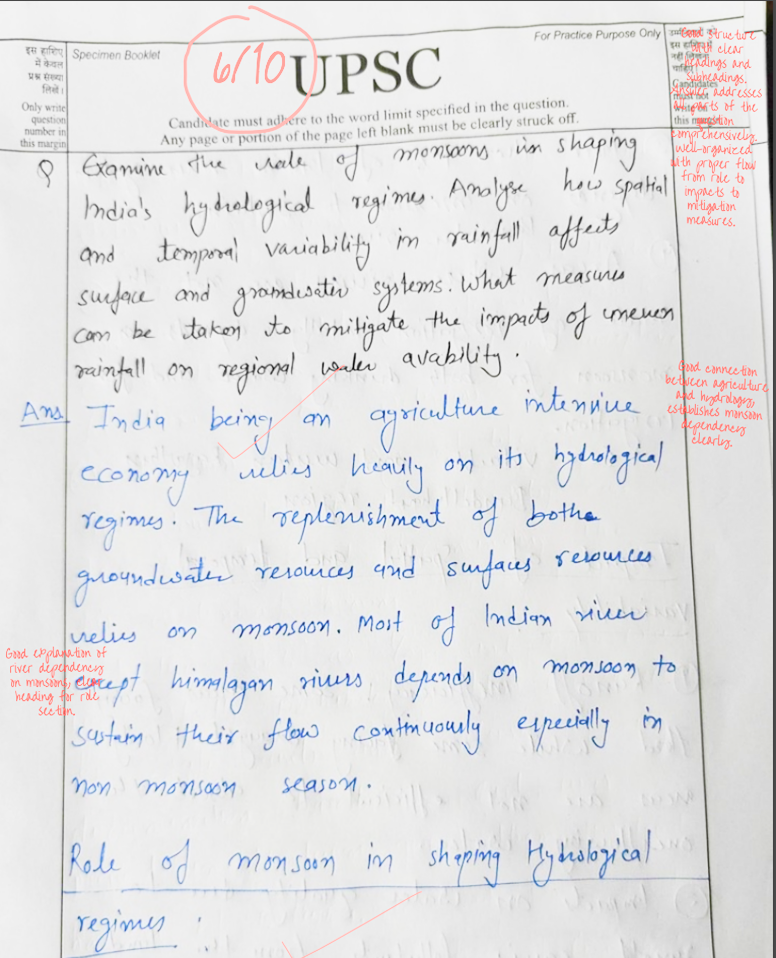 इस हाशिए
में केवल
प्रश्न संख्या
लिखें।
Only write
question
number in
this margin
Specimen Booklet
6/10
UPSC
For Practice Purpose Only
Candidate must adhere to the word limit specified in the question.
Any page or portion of the page left blank must be clearly struck off.
उम्मीदवारों को
इस हाशिए में
नहीं लिखना
चाहिए।
Candidates
must not
write on
this margin
Good structure
with clear
headings and
subheadings.
Answer addresses
all parts of the
question
comprehensively.
Well-organized
with proper flow
from role to
impacts to
mitigation
measures.
Q Examine the role of monsoons in shaping
India's hydrological regimes. Analyse how spatial
and temporal variability in rainfall affects
surface and groundwater systems. What measures
can be taken to mitigate the impacts of uneven
rainfall on regional water avability.
Good connection
between agriculture
and hydrology,
establishes monsoon
dependency
clearly.
Ans India being an agriculture intensive
economy relies heavily on its hydrological
regimes. The replenishment of both
groundwater resources and surfaces resources
relies on monsoon. Most of Indian river
except himalayan rivers depends on monsoon to
sustain their flow continuously especially in
non monsoon season.
Good explanation of
river dependency
on monsoons, clear
heading for role
section.
Role of monsoon in shaping Hydrological
regimes :